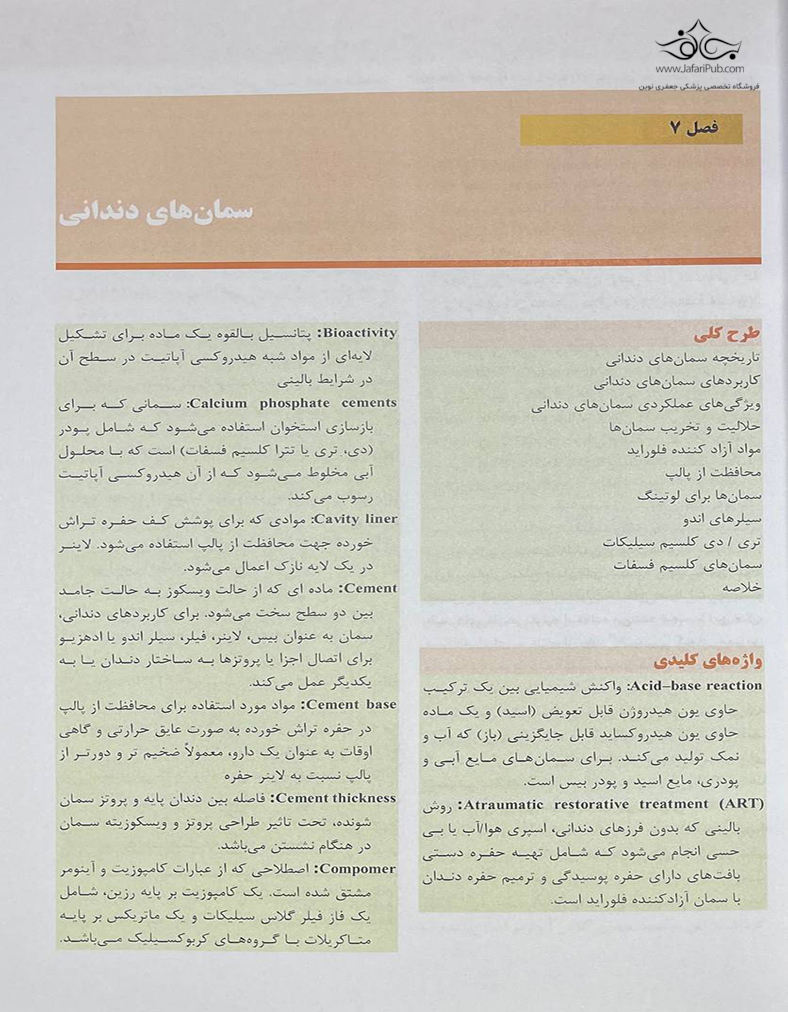 www.JafariPub.com
فروشگاه تخصصی پزشکی جعفری نوین
فصل ۷
سمان‌های دندانی
طرح کلی
تاریخچه سمان‌های دندانی
کاربردهای سمان‌های دندانی
ویژگی‌های عملکردی سمان‌های دندانی
حلالیت و تخریب سمان‌ها
مواد آزاد کننده فلوراید
محافظت از پالپ
سمان‌ها برای لوتینگ
سیلرهای اندو
تری / دی کلسیم سیلیکات
سمان‌های کلسیم فسفات
خلاصه
واژه‌های کلیدی
Acid–base reaction: واکنش شیمیایی بین یک ترکیب
حاوی یون هیدروژن قابل تعویض (اسید) و یک ماده
حاوی یون هیدروکساید قابل جایگزینی (باز) که آب و
نمک تولید می‌کند. برای سمان‌های مایع آبی و
پودری، مایع اسید و پودر بیس است.
Atraumatic restorative treatment (ART): روش
بالینی که بدون فرزهای دندانی، اسپری هوا/آب یا بی
حسی انجام می‌شود که شامل تهیه حفره دستی
بافت‌های دارای حفره پوسیدگی و ترمیم حفره دندان
با سمان آزادکننده فلوراید است.
Bioactivity: پتانسیل بالقوه یک ماده برای تشکیل
لایه‌ای از مواد شبه هیدروکسی آپاتیت در سطح آن
در شرایط بالینی
Calcium phosphate cements: سمانی که برای
بازسازی استخوان استفاده می‌شود که شامل پودر
(دی، تری یا تترا کلسیم فسفات) است که با محلول
آبی مخلوط می‌شود که از آن هیدروکسی آپاتیت
رسوب می‌کند.
Cavity liner: موادی که برای پوشش کف حفره تراش
خورده جهت محافظت از پالپ استفاده می‌شود. لاینر
در یک لایه نازک اعمال می‌شود.
Cement: ماده ای که از حالت ویسکوز به حالت جامد
بین دو سطح سخت می‌شود. برای کاربردهای دندانی،
سمان به عنوان بیس، لاینر، فیلر، سیلر اندو یا ادهزیو
برای اتصال اجزا یا پروتزها به ساختار دندان یا به
یکدیگر عمل می‌کند.
Cement base: مواد مورد استفاده برای محافظت از پالپ
در حفره تراش خورده به صورت عایق حرارتی و گاهی
اوقات به عنوان یک دارو، معمولاً ضخیم تر و دورتر از
پالپ نسبت به لاینر حفره
Cement thickness: فاصله بین دندان پایه و پروتز سمان
شونده، تحت تاثیر طراحی پروتز و ویسکوزیته سمان
در هنگام نشستن می‌باشد.
Compomer: اصطلاحی که از عبارات کامپوزیت و آینومر
مشتق شده است. یک کامپوزیت بر پایه رزین، شامل
یک فاز فیلر گلاس سیلیکات و یک ماتریکس بر پایه
متاکریلات با گروه‌های کربوکسیلیک می‌باشد.